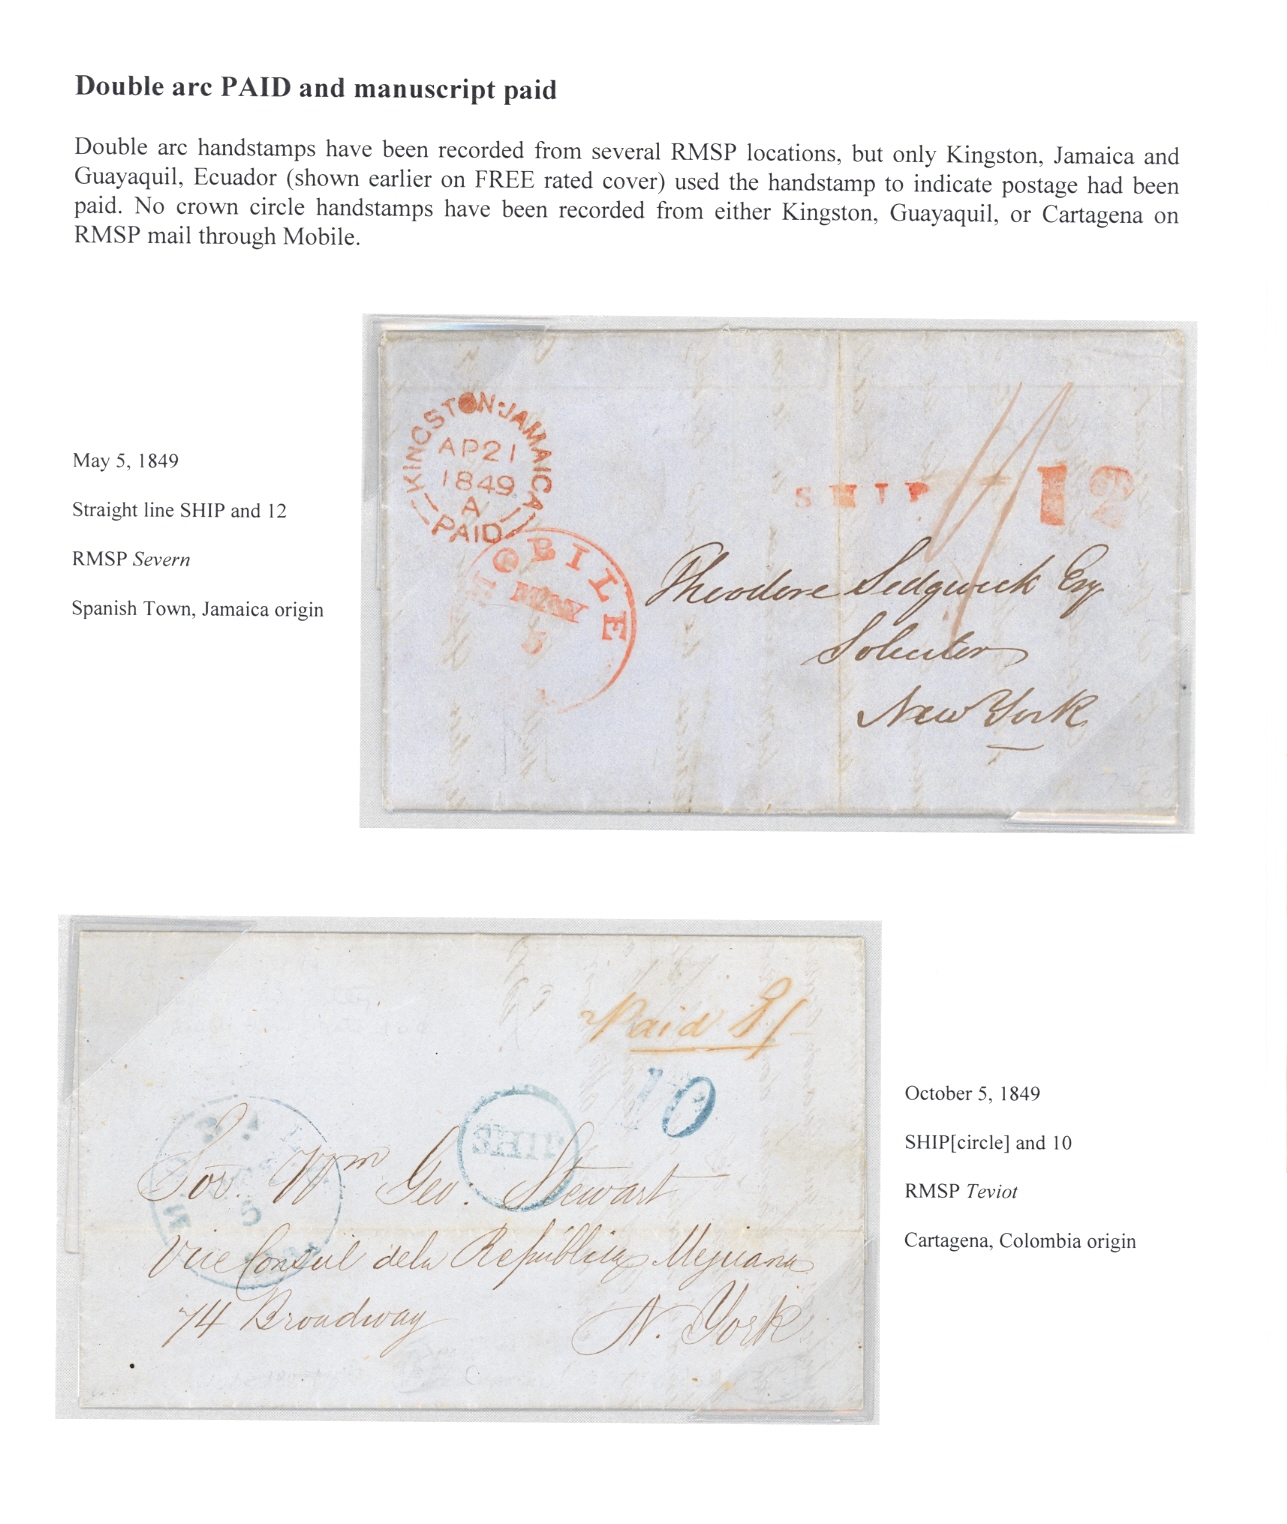 Double arc PAID and manuscript paid
Double arc handstamps have been recorded from several RMSP locations, but only Kingston, Jamaica and
Guayaquil, Ecuador (shown earlier on FREE rated cover) used the handstamp to indicate postage had been
paid. No crown circle handstamps have been recorded from either Kingston, Guayaquil, or Cartagena on
RMSP mail through Mobile.
May 5, 1849
Straight line SHIP and 12
RMSP Severn
Spanish Town, Jamaica origin
KINGSTON-JAMAICA
AP21
1849
A
PAID
MOBILE
MAY
5
SHIP 12
Theodore Sedgwick Esq
Soliciter
New York
Paid 1/
10
SHIP
5
Sor. Wm Geo: Stewart
Vice Consul dela República Mejicana
74 Broadway N. York
October 5, 1849
SHIP[circle] and 10
RMSP Teviot
Cartagena, Colombia origin